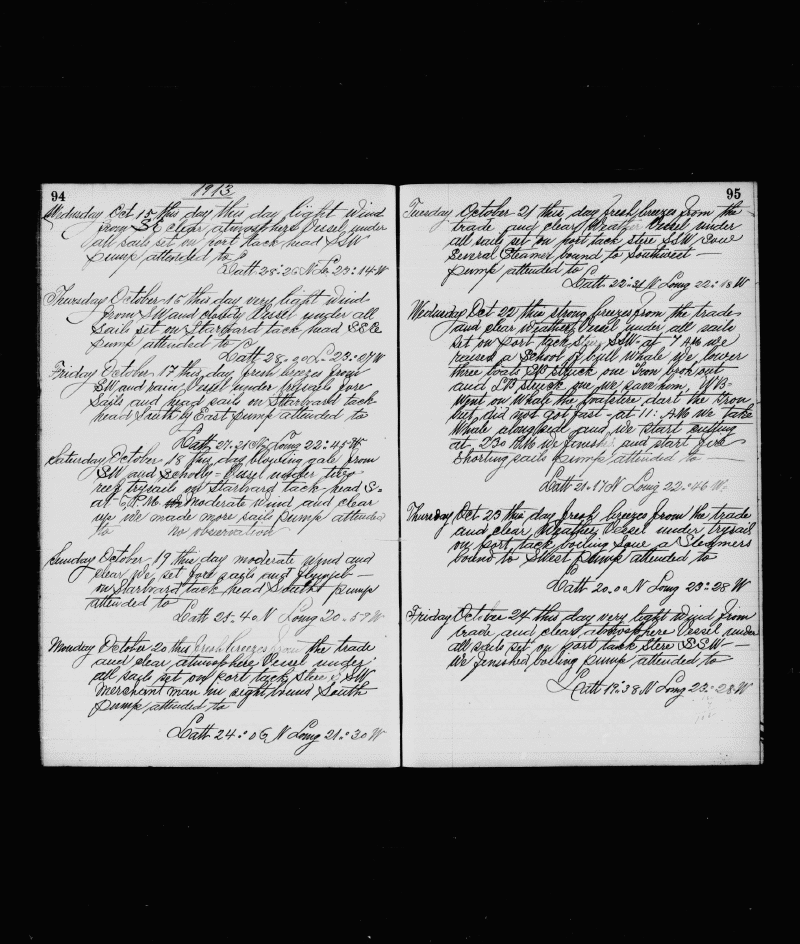 94
1913
Wednesday Oct 15 this day this day light wind
from SE clear atmosphere Vessel under
all sails set on port tack head SSW
pump attended to
Latt 28:26 N Lo 23:14 W
Thursday October 16 this day very light wind
from SW and cloudy Vessel under all
Sails set on Starboard tack head SSE
pump attended to
Latt 28 L 23:27 W
Friday October 17 this day fresh breezes from
SW and rain Vessel under trysails fore
Sails and head sails on Starboard tack
head South by East pump attended to
Latt 27.21 N Long 22:45 W
Saturday October 18 this day blowing gale from
SW and Vessel under
reep trysail on Starboard tack head S
at 6 P.M. Moderate wind and clear
up we made more sails pump attended
to no observation
Sunday October 19 this day moderate wind and
clear we set fore sails and flyngjib
on Starboard tack head South pump
attended to
Latt 25.40 N Long 20.59 W
Monday October 20 this fresh breezes from the trade
and clear atmosphere Vessel under
all sails set on port tack Stere SW
Merchant man in sight bound South
pump attended to
Latt 24:06 N Long 21:30 W
95
Tuesday October 21 this day fresh breezes from the
trade and clear Weather Vessel under
all sails set on port tack stere SSW Saw
Several Steamer bound to Southwest
pump attended to
Latt 22:31 N Long 22:18 W
Wednesday Oct 22 this strong breezes from the trade
and clear weather Vessel under all sails
set on port tack SW at 7 AM we
reised a School of bull Whale we lower
three boats SB struck one Iron out
and LB struck one we save him, WB
went on Whale the boatstere dart the Iron
but did not got fast at 11: AM we take
Whale alongside and we start cutting
at 2:30 PM we finish and start
Shorting sails pump attended to
Latt 21.17 N Long 22:46 W
Thursday Oct 23 this day fresh breezes from the trade
and clear Weather Vessel under trysail
on port tack boiling Saw a Steamers
bound to SWest pump attended to
Latt 20.00 N Long 23:28 W
Friday October 24 this day very light wind from
trade and clear atmosphere Vessel under
all sails set on port tack Stere SSW
we finished boiling pump attended to
Latt 19:38 N Long 23:28 W